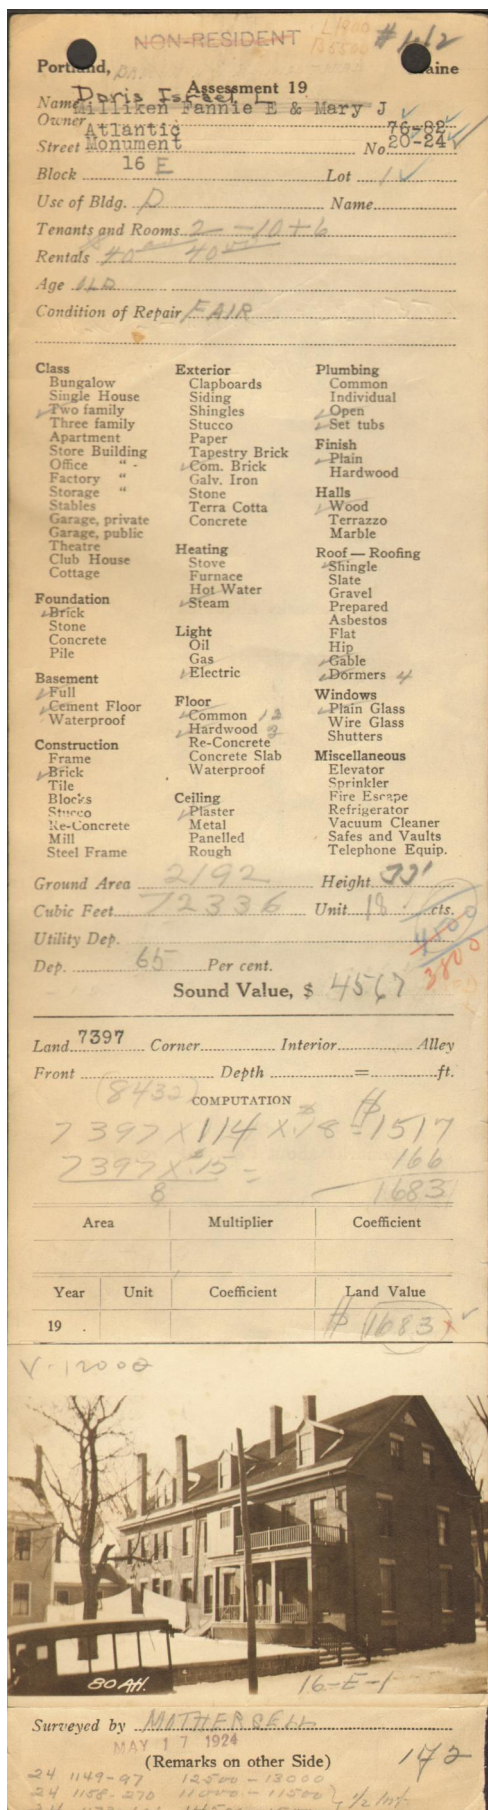 NON-RESIDENT L1900 #1612
B5500
Portland, Maine
Assessment 19
Doris Israel L
Name Milliken Fannie E & Mary J
Owner Atlantic 76-82
Street Monument No 20-24
Block 16 E Lot 1
Use of Bldg. D Name
Tenants and Rooms 2 - 10 + 6
Rentals 40 40
Age OLD
Condition of Repair FAIR
Class
Bungalow
Single House
Two family
Three family
Apartment
Store Building
Office "
Factory "
Storage "
Stables
Garage, private
Garage, public
Theatre
Club House
Cottage
Foundation
Brick
Stone
Concrete
Pile
Basement
Full
Cement Floor
Waterproof
Construction
Frame
Brick
Tile
Blocks
Stucco
Re-Concrete
Mill
Steel Frame
Exterior
Clapboards
Siding
Shingles
Stucco
Paper
Tapestry Brick
Com. Brick
Galv. Iron
Stone
Terra Cotta
Concrete
Heating
Stove
Furnace
Hot Water
Steam
Light
Oil
Gas
Electric
Floor
Common 13
Hardwood 3
Re-Concrete
Concrete Slab
Waterproof
Ceiling
Plaster
Metal
Panelled
Rough
Plumbing
Common
Individual
Open
Set tubs
Finish
Plain
Hardwood
Halls
Wood
Terrazzo
Marble
Roof — Roofing
Shingle
Slate
Gravel
Prepared
Asbestos
Flat
Hip
Gable
Dormers 4
Windows
Plain Glass
Wire Glass
Shutters
Miscellaneous
Elevator
Sprinkler
Fire Escape
Refrigerator
Vacuum Cleaner
Safes and Vaults
Telephone Equip.
Ground Area 2192 Height 33'
Cubic Feet 72336 Unit 18 cts.
Utility Dep.
3800
Dep. 65 Per cent.
Sound Value, $ 4567
Land 7397 Corner Interior Alley
Front Depth = ft.
8432
COMPUTATION
7397 X 114 X .18 = 1517
7397 X .15 = 166
8 1683
Area Multiplier Coefficient
Year Unit Coefficient Land Value
19 $ 1683
V-12002
80 AH.
16-E-1
Surveyed by MOTHERSELL
MAY 17 1924
(Remarks on other Side) 142
24 1149-97 12500 - 13000
24 1158-270 11000 - 11500